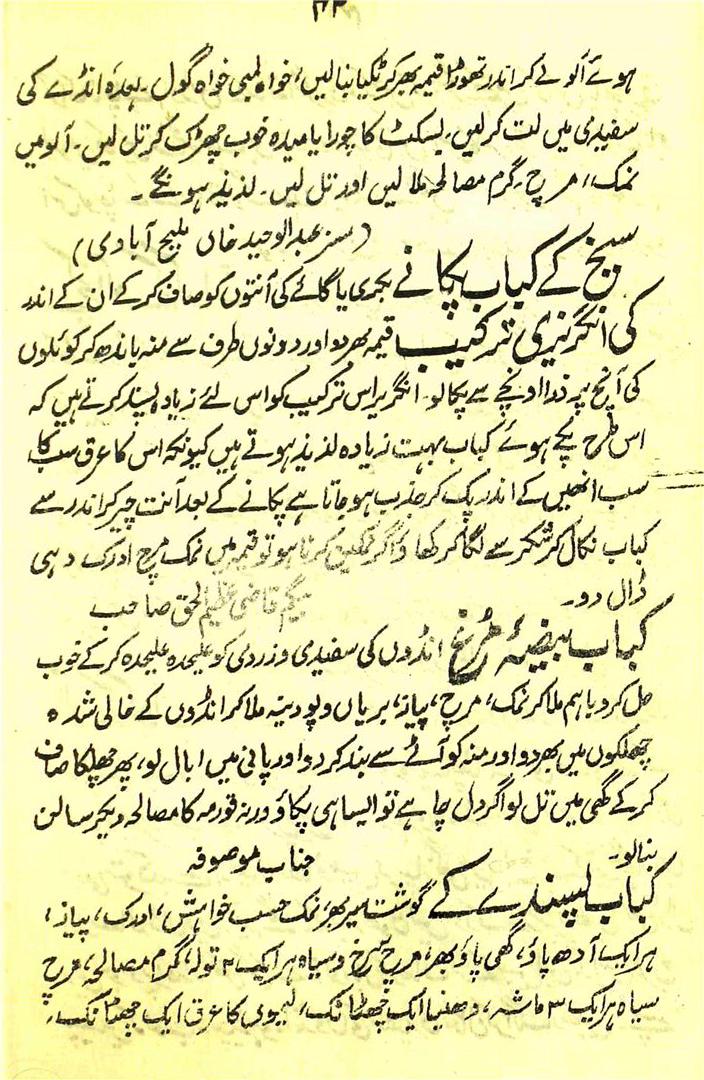 ۴۳
ہوئے آلو لے کر اندر تھوڑا قیمہ بھر کر ٹکیا بنا لیں، خواہ لمبی خواہ گول۔ بعدہٗ انڈے کی
سفیدی میں لت کر لیں۔ بسکٹ کا چورا یا میدہ خوب چھڑک کر تل لیں۔ آلو میں
نمک، مرچ۔ گرم مصالحہ ملا لیں اور تل لیں۔ لذیذ ہونگے۔
(مسز عبدالوحید خاں ملیح آبادی)
سیخ کے کباب پکانے بکری یا گائے کی آنتوں کو صاف کر کے ان کے اندر
کی انگریزی ترکیب قیمہ بھر دو اور دونوں طرف سے منہ باندھ کر کوئلوں
کی آنچ پر ذرا اونچے سے پکا لو۔ انگریز اس ترکیب کو اس لئے زیادہ پسند کرتے ہیں کہ
اس طرح پکے ہوئے کباب بہت زیادہ لذیذ ہوتے ہیں کیونکہ اس کا عرق سب کا
سب انھیں کے اندر پک کر جذب ہو جاتا ہے پکانے کے بعد آنت چیر کر اندر سے
کباب نکال کر شکر سے لگا کر کھاؤ اگر نمکین کرنا ہو تو قیمہ میں نمک مرچ ادرک دہی
ڈال دو۔
بیگم قاضی عظیم الحق صاحب
کباب بیضۂ مُرغ انڈوں کی سفیدی و زردی کو علیحدہ علیحدہ کر کے خوب
حل کر دو باہم ملا کر نمک، مرچ، پیاز، بریاں و پودینہ ملا کر انڈوں کے خالی شدہ
چھلکوں میں بھر دو اور منہ کو آٹے سے بند کر دو اور پانی میں ابال لو، پھر چھلکا صاف
کر کے گھی میں تل لو اگر دل چاہے تو ایسا ہی پکاؤ ورنہ قورمہ کا مصالحہ دیکر سالن
بنا لو۔
جناب موصوفہ
کباب پسندے کے گوشت سیر بھر، نمک حسب خواہش، ادرک، پیاز،
ہر ایک آدھ پاؤ، گھی پاؤ بھر، مرچ سرخ و سیاہ ہر ایک ۲ تولہ، گرم مصالحہ، مرچ
سیاہ ہر ایک ۳ ماشہ، دھنیا ایک چھٹانک، لیموں کا عرق ایک چھٹانک۔